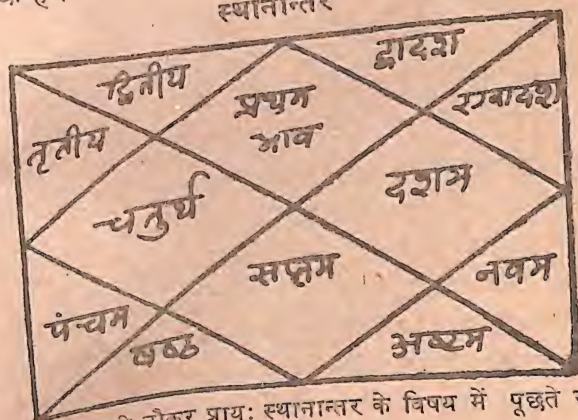 स्थानान्तर
द्वितीय
द्वादश
तृतीय
प्रथम
भाव
एकादश
चतुर्थ
दशम
सप्तम
नवम
पंचम
षष्ठ
अष्टम
नौकर प्रायः स्थानान्तर के विषय में पूछते